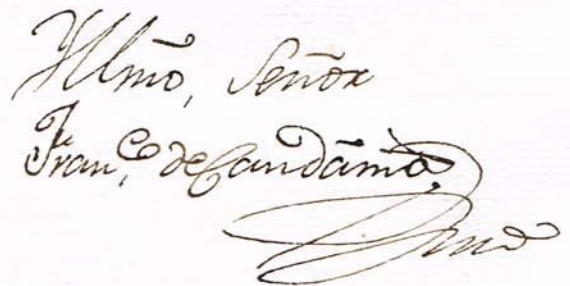 Yllmo, Señor
Fran,co de Candamo,